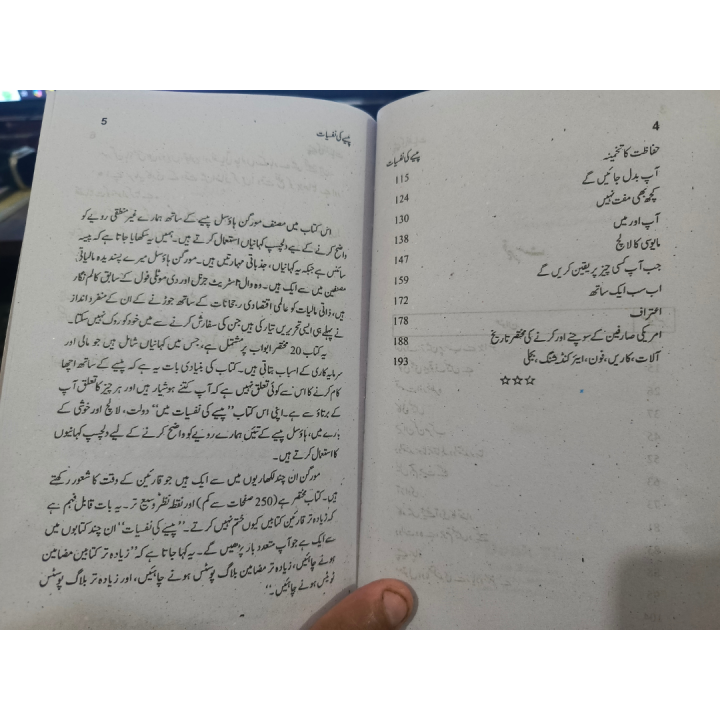 4
پیسے کی نفسیات
حفاظت کا تخمینہ 115
آپ بدل جائیں گے 124
کچھ بھی مفت نہیں 130
آپ اور میں 138
مایوسی کا لالچ 147
جب آپ کسی چیز پر یقین کریں گے 159
اب سب ایک ساتھ 172
اعتراف 178
امریکی صارفین کے سوچنے اور کرنے کی مختصر تاریخ 188
آلات، کاریں، فون، ایئر کنڈیشنگ، بجلی 193
☆☆☆
5
پیسے کی نفسیات
اس کتاب میں مصنف مورگن ہاؤسل پیسے کے ساتھ ہمارے غیر منطقی رویے کو
واضح کرنے کے لیے دلچسپ کہانیاں استعمال کرتے ہیں۔ ہمیں یہ سکھایا جاتا ہے کہ پیسہ
سائنس ہے جبکہ یہ کہانیاں، جذباتی مہارتیں ہیں۔ مورگن ہاؤسل میرے پسندیدہ مالیاتی
مصنفین میں سے ایک ہیں۔ وہ وال اسٹریٹ جرنل اور دی موٹلی فول کے سابق کالم نگار
ہیں، ذاتی مالیات کو عالمی اقتصادی رجحانات کے ساتھ جوڑنے کے ان کے منفرد انداز
نے پہلے ہی ایسی تحریریں تیار کی ہیں جن کی سفارش کرنے سے میں خود کو روک نہیں سکتا۔
یہ کتاب 20 مختصر ابواب پر مشتمل ہے، جس میں کہانیاں شامل ہیں جو مالی اور
سرمایہ کاری کے اسباب بتاتی ہیں۔ کتاب کی بنیادی بات یہ ہے کہ پیسے کے ساتھ اچھا
کام کرنے کا اس سے کوئی تعلق نہیں ہے کہ آپ کتنے ہوشیار ہیں اور ہر چیز کا تعلق آپ
کے برتاؤ سے ہے۔ اپنی اس کتاب ”پیسے کی نفسیات میں“ دولت، لالچ اور خوشی کے
بارے میں، ہاؤسل پیسے کے تئیں ہمارے رویے کو واضح کرنے کے لیے دلچسپ کہانیوں
کا استعمال کرتے ہیں۔
مورگن ان چند لکھاریوں میں سے ایک ہیں جو قارئین کے وقت کا شعور رکھتے
ہیں۔ کتاب مختصر ہے (250 صفحات سے کم) اور نقطہ نظر وسیع تر۔ یہ بات قابل فہم ہے
کہ زیادہ تر قارئین کتابیں کیوں ختم نہیں کرتے۔ ”پیسے کی نفسیات“ ان چند کتابوں میں
سے ایک ہے جو آپ متعدد بار پڑھیں گے۔ یہ کہا جاتا ہے کہ ”زیادہ تر کتابیں مضامین
ہونے چاہئیں، زیادہ تر مضامین بلاگ پوسٹس ہونے چاہئیں، اور زیادہ تر بلاگ پوسٹس
ٹویٹس ہونے چاہئیں۔“